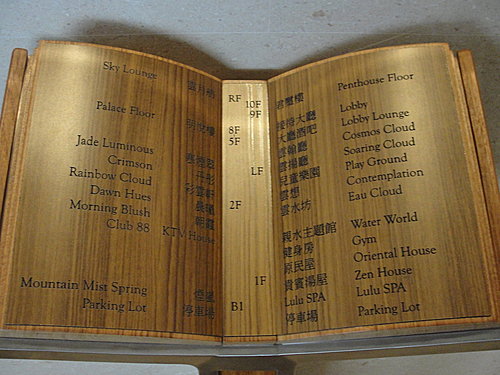 Sky Lounge
Palace Floor
Jade Luminous
Crimson
Rainbow Cloud
Dawn Hues
Morning Blush
Club 88 KTV House
Mountain Mist Spring
Parking Lot 停車場
RF
10F
9F
8F
5F
LF
2F
1F
B1
Penthouse Floor
Lobby
大廳酒吧 Lobby Lounge
Cosmos Cloud
Soaring Cloud
兒童樂園 Play Ground
雲想 Contemplation
雲水坊 Eau Cloud
親水主題館 Water World
健身房 Gym
原民屋 Oriental House
貴賓湯屋 Zen House
Lulu SPA Lulu SPA
停車場 Parking Lot